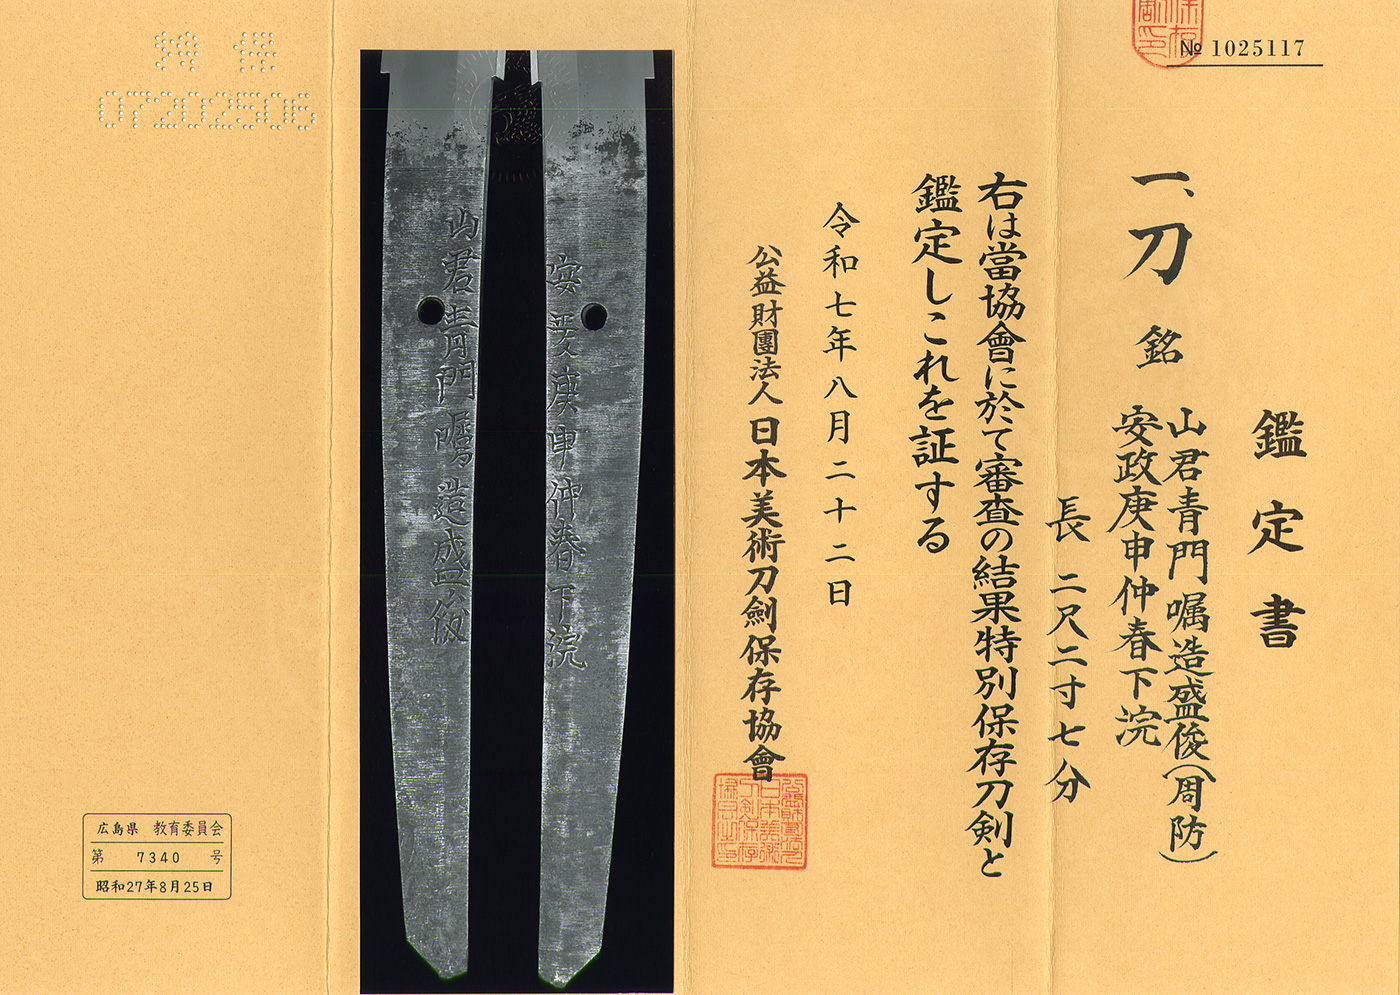 № 1025117
鑑定書
一、刀 銘 山君青門嘱造盛俊(周防)
安政庚申仲春下浣
長 二尺二寸七分
右は當協會に於て審査の結果特別保存刀剣と
鑑定しこれを証する
令和七年八月二十二日
公益財團法人 日本美術刀劍保存協會
安政庚申仲春下浣
山君青門嘱造盛俊
特保
07202506
広島県 教育委員会
第 7340 号
昭和27年8月25日